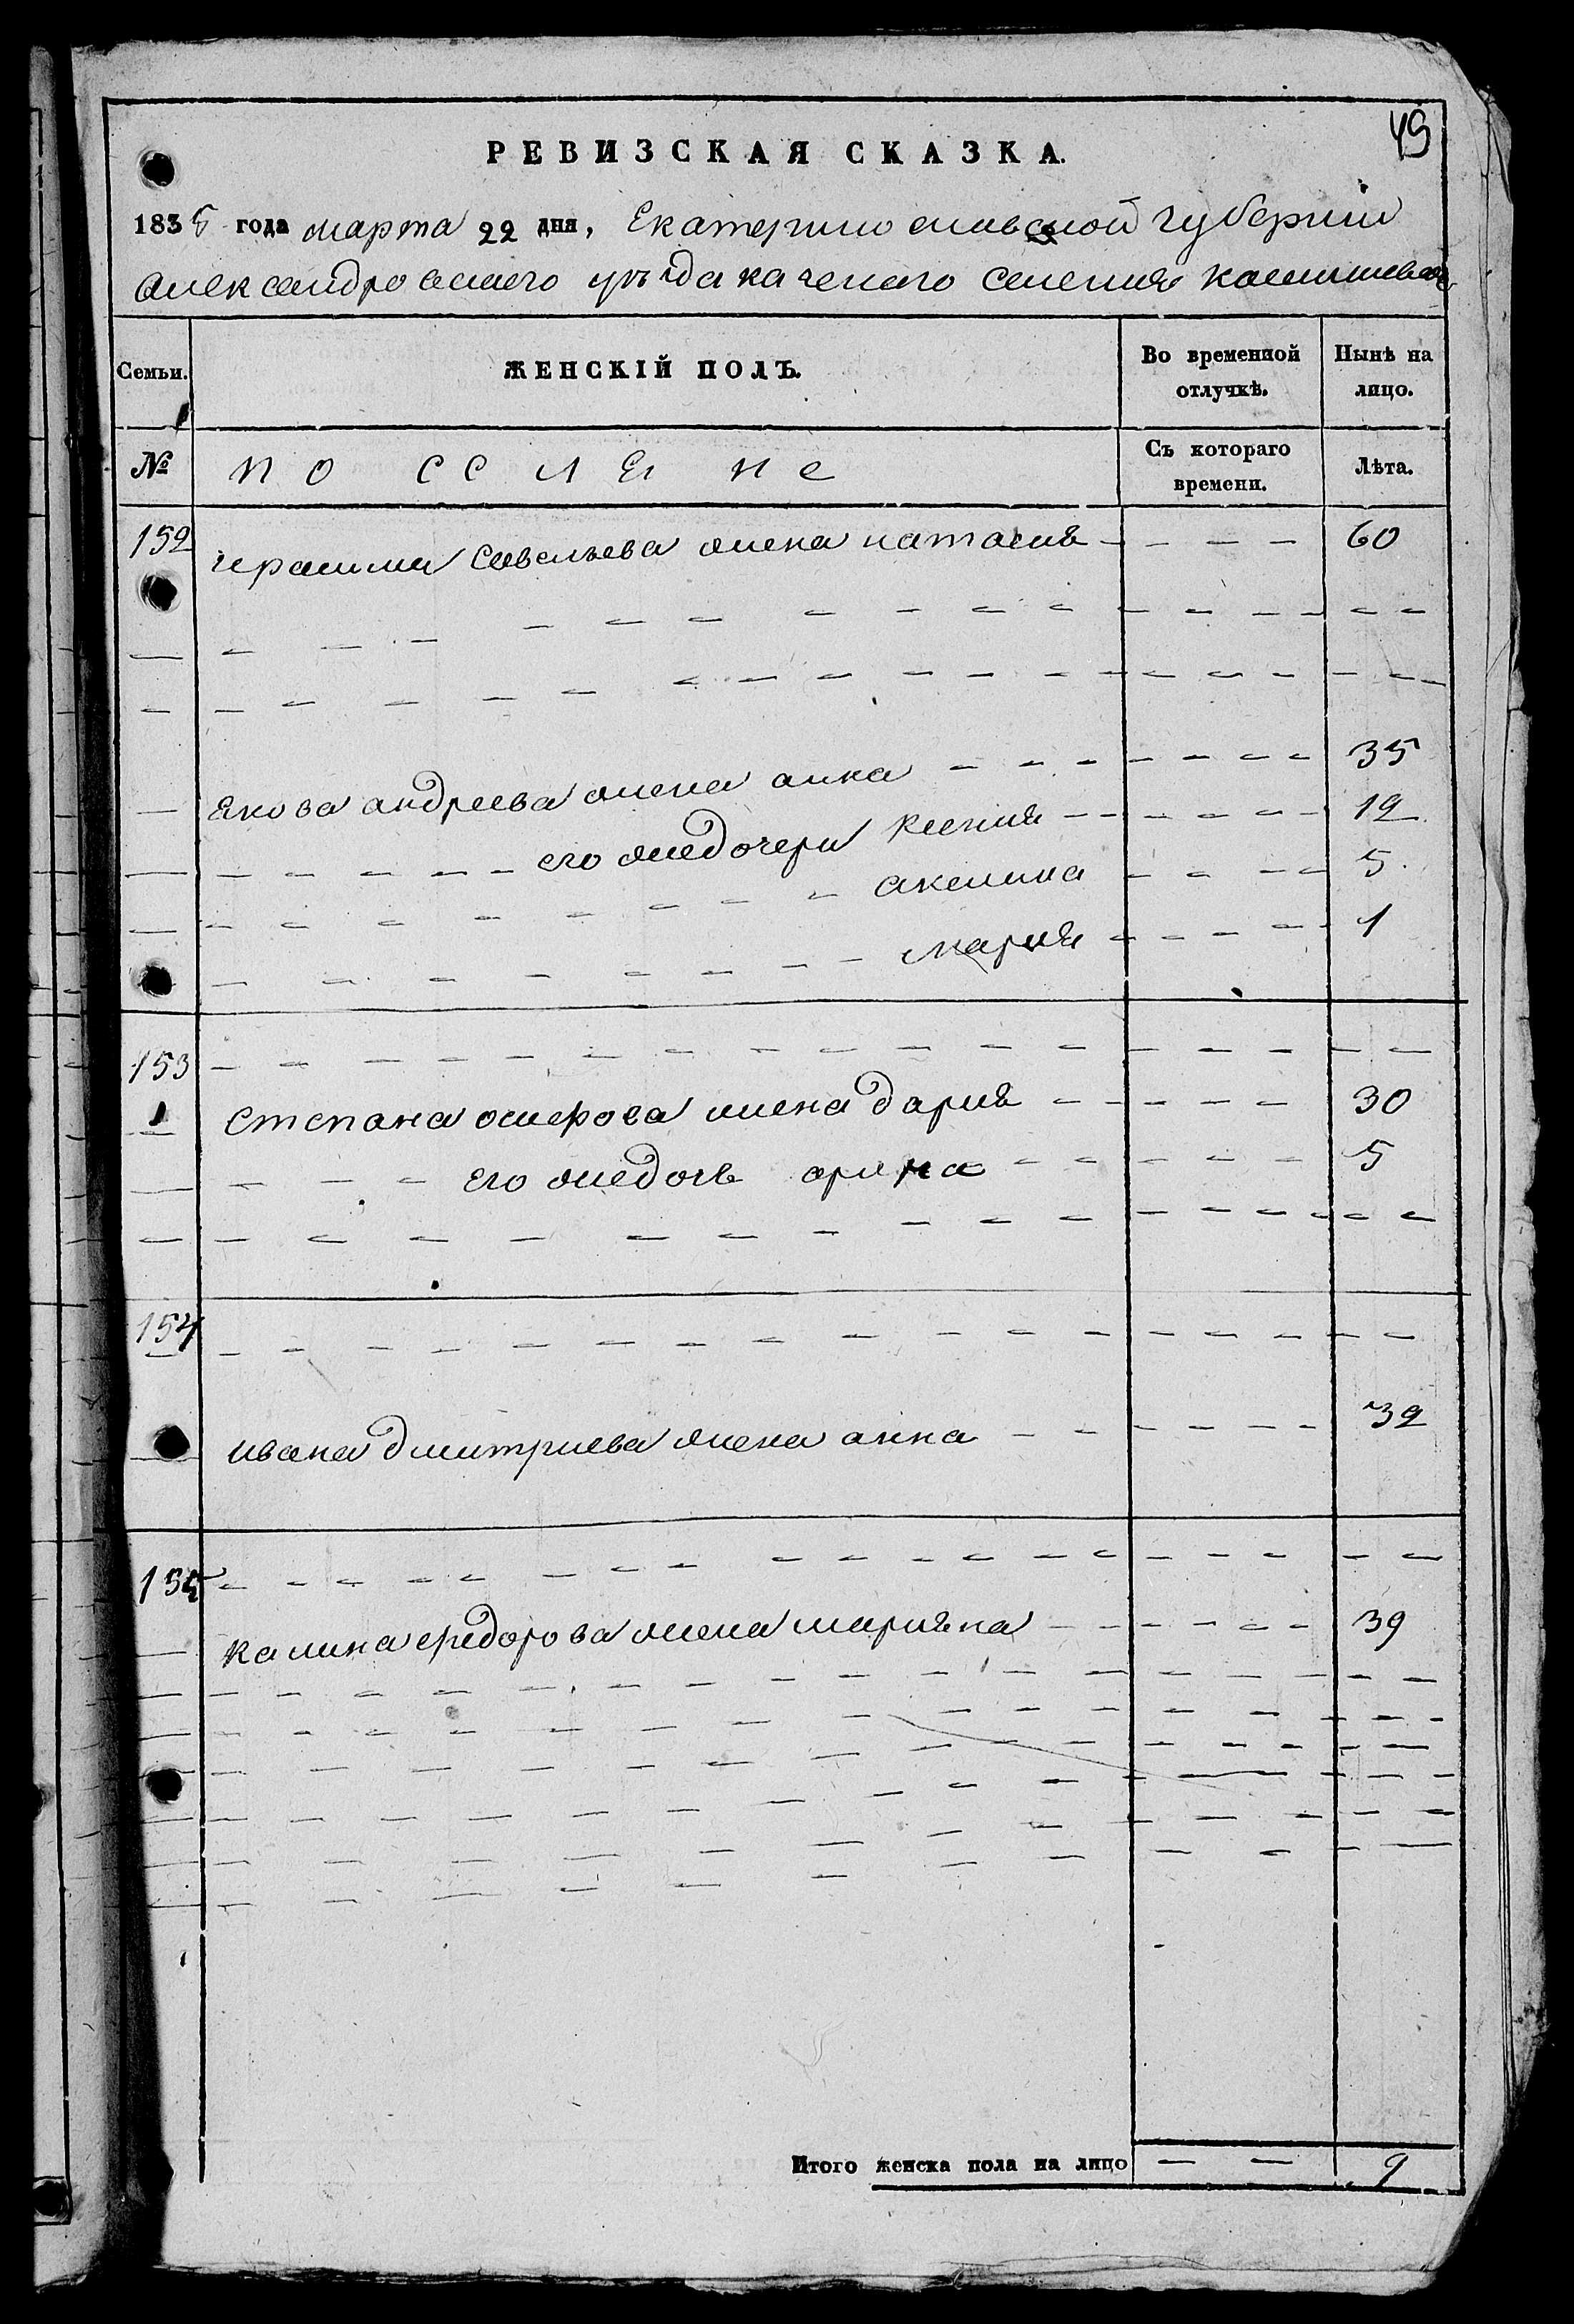 49
РЕВИЗСКАЯ СКАЗКА.
1835 года марта 22 дня, Екатеринославской губернии
Александровского уѣзда казеннаго селения
Семьи. ЖЕНСКІЙ ПОЛЪ. Во временной отлучкѣ. Нынѣ на лицо.
№ поселяне Съ котораго времени. Лѣта.
152 герасима савельева жена натасия - - - - 60
якова андреева жена анна - - - - - - 35
его же дочери ксения - - - - - - 12
акелина - - - - 5
мария - - - - 1
153
степана осифова жена дария - - - - - 30
его же дочь арина - - - - - 5
154
ивана дмитриева жена анна - - - - - 32
155
калина федорова жена марияна - - - - - 39
Итого женска пола на лицо — — 9